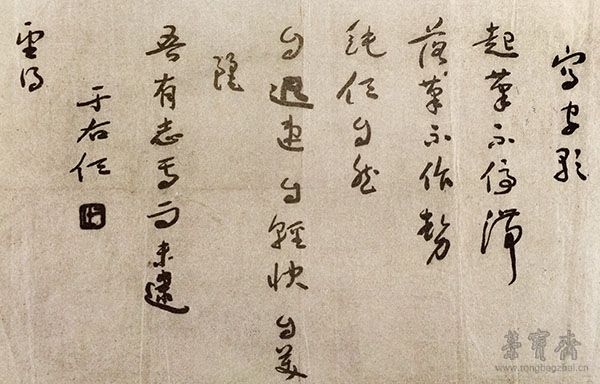 寫字歌
起筆不停滯
落筆不作勢
純任自然
自迅速自輕快自美
麗
吾有志焉而未逮
于右任
榮寶齋
www.rongbaozhai.cn